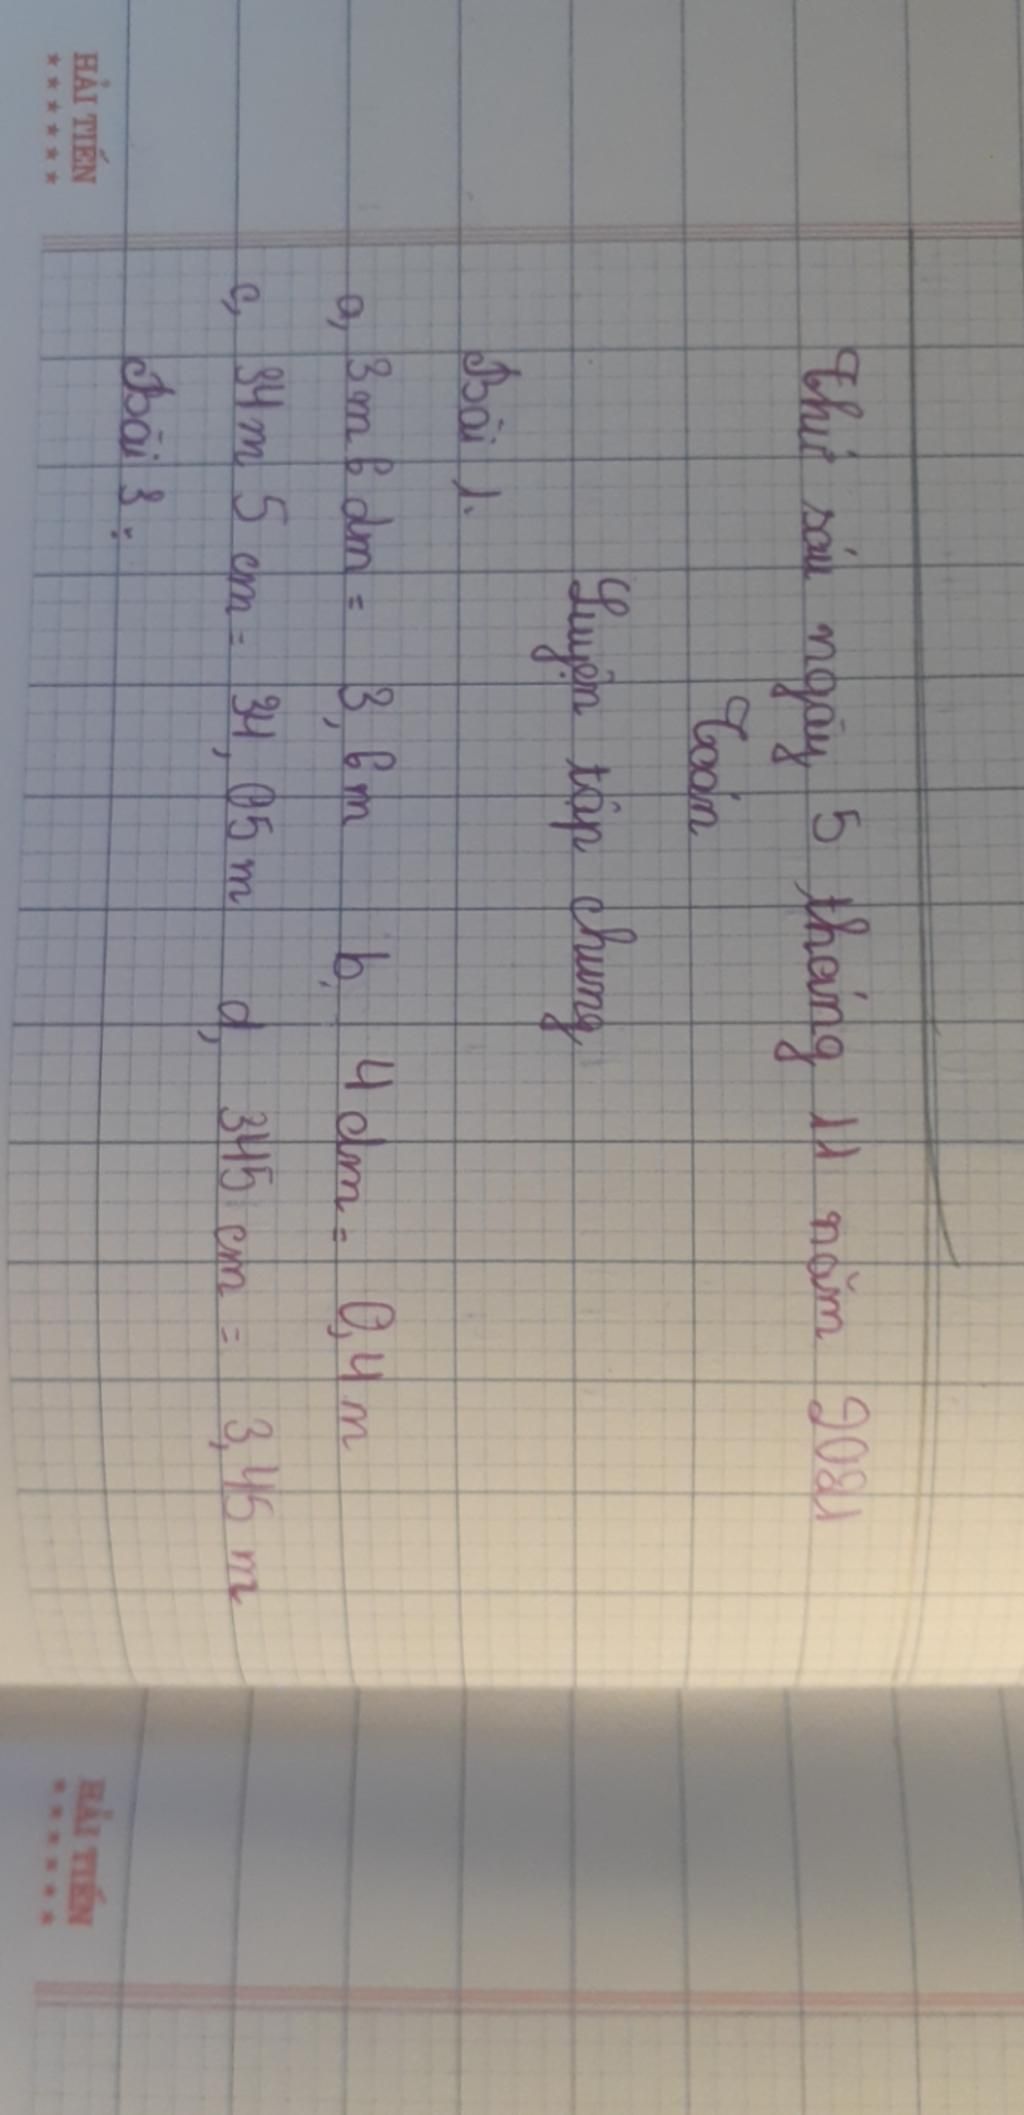 Thứ sáu ngày 5 tháng 11 năm 2021
Toán
Luyện tập chung
Bài 1.
a, 3m 6 dm = 3,6m b, 4 dm = 0,4 m
c, 34m 5 cm = 34,05 m d, 345 cm = 3,45 m
Bài 3:
HẢI TIẾN
HẢI TIẾN